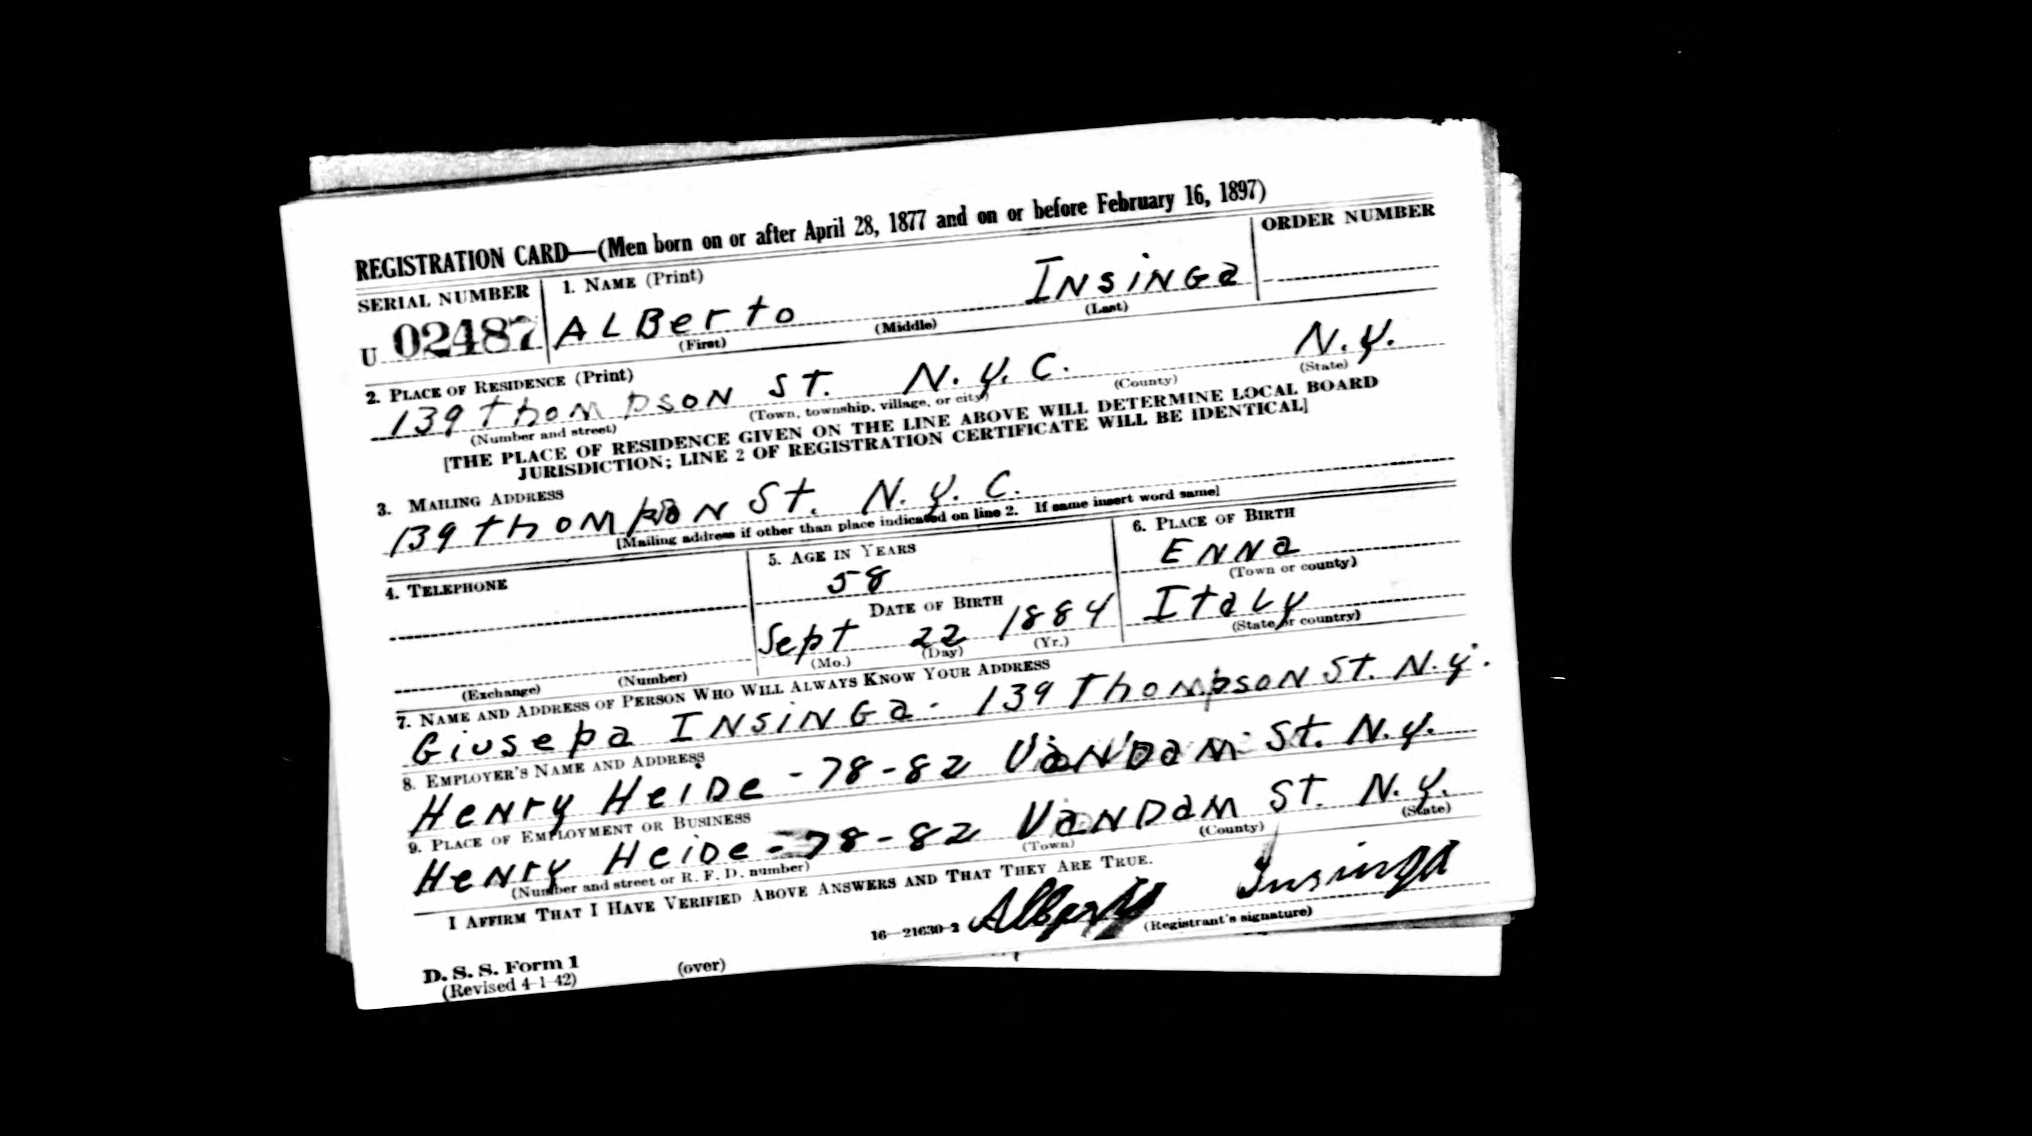 REGISTRATION CARD—(Men born on or after April 28, 1877 and on or before February 16, 1897)
SERIAL NUMBER
1. NAME (Print)
ORDER NUMBER
U 02487
ALBerto INSiNGa
(First) (Middle) (Last)
2. PLACE OF RESIDENCE (Print)
139 thompson ST. N.Y.C. N.Y.
(Number and street) (Town, township, village, or city) (County) (State)
[THE PLACE OF RESIDENCE GIVEN ON THE LINE ABOVE WILL DETERMINE LOCAL BOARD
JURISDICTION; LINE 2 OF REGISTRATION CERTIFICATE WILL BE IDENTICAL]
3. MAILING ADDRESS
139 thompson St. N.Y.C.
[Mailing address if other than place indicated on line 2. If same insert word same]
4. TELEPHONE
(Exchange) (Number)
5. AGE IN YEARS
58
DATE OF BIRTH
Sept 22 1884
(Mo.) (Day) (Yr.)
6. PLACE OF BIRTH
ENNa
(Town or county)
ItaLy
(State or country)
7. NAME AND ADDRESS OF PERSON WHO WILL ALWAYS KNOW YOUR ADDRESS
Giusepa INSiNGa - 139 ThompsoN ST. N.Y.
8. EMPLOYER'S NAME AND ADDRESS
HeNry HeiDe - 78-82 VaNDam St. N.Y.
9. PLACE OF EMPLOYMENT OR BUSINESS
HeNry HeiDe - 78-82 VaNDam ST. N.Y.
(Number and street or R. F. D. number) (Town) (County) (State)
I AFFIRM THAT I HAVE VERIFIED ABOVE ANSWERS AND THAT THEY ARE TRUE.
Alberto Insinga
D. S. S. Form 1
(Revised 4-1-42)
(over)
16—21630-2
(Registrant's signature)